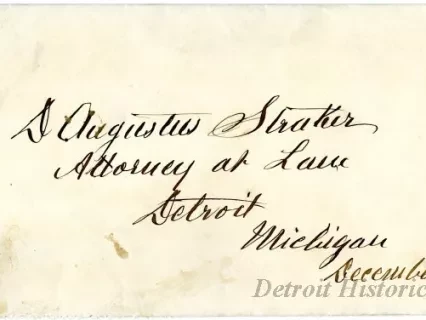 D Augustus Straker
Attorney at Law
Detroit
Michigan
Decembe
Detroit Historic